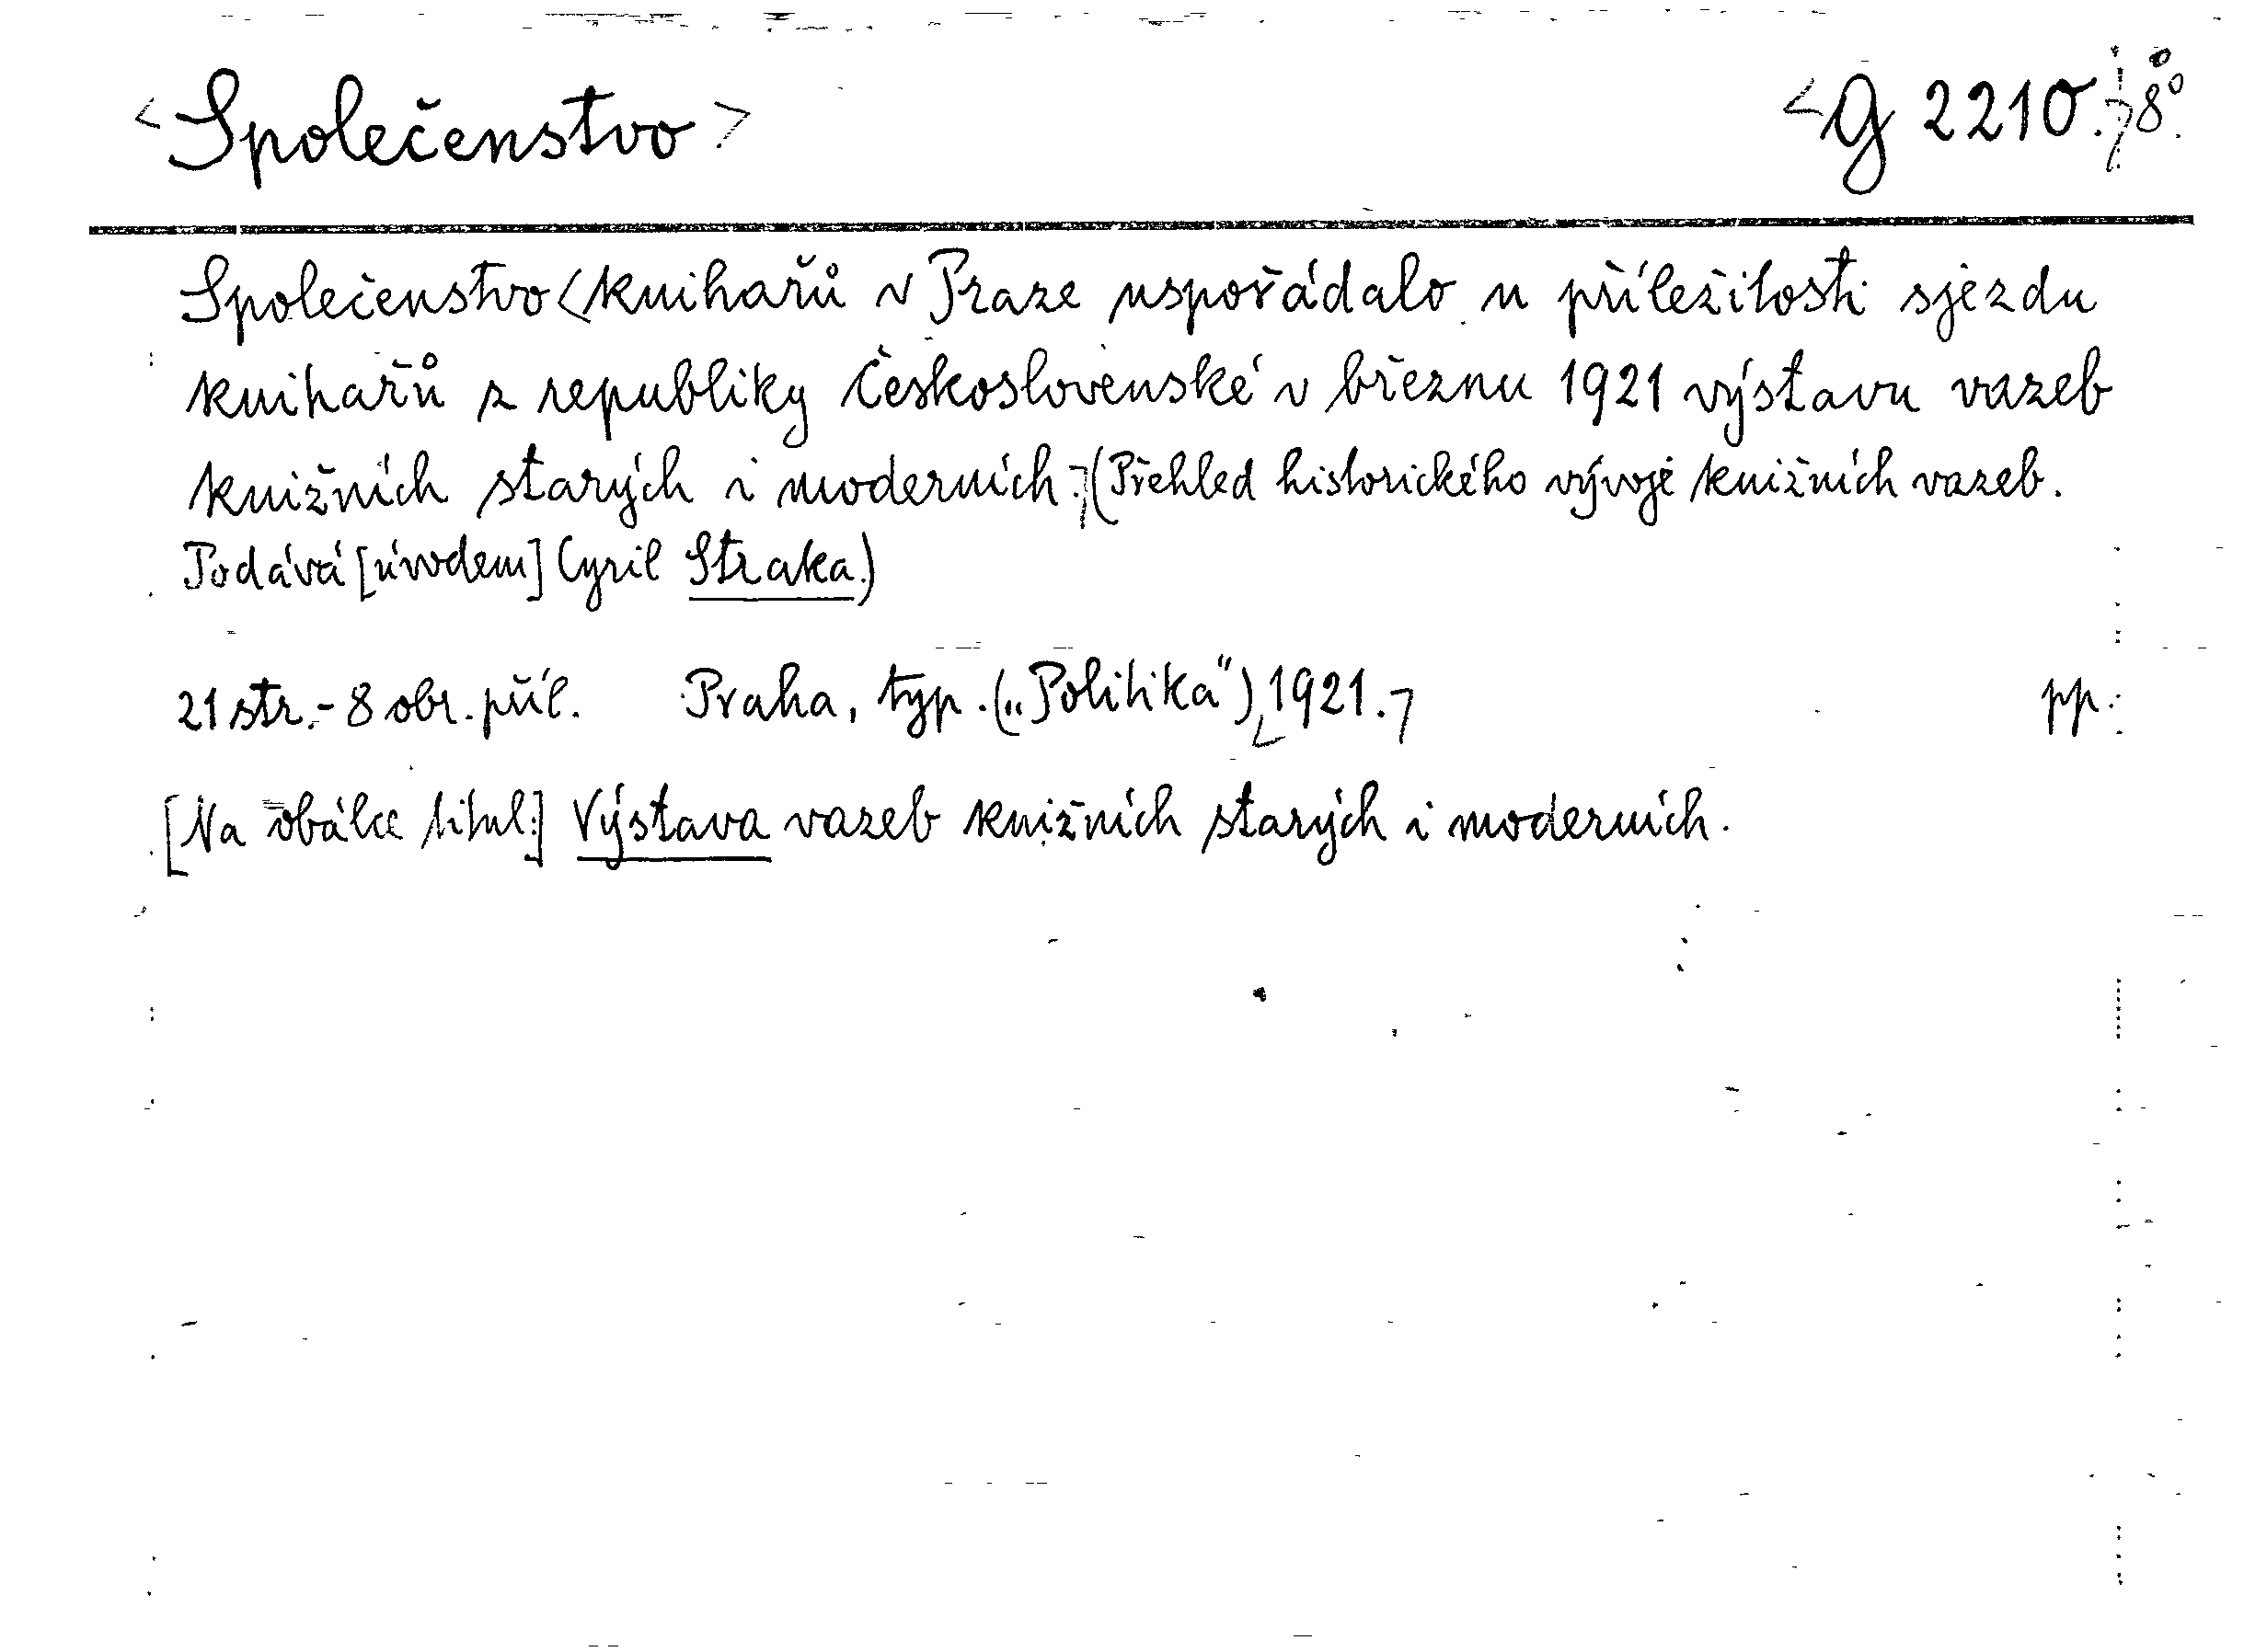 <Společenstvo>
<G 2210.> 8°.
Společenstvo <knihařů v Praze uspořádalo u příležitosti sjezdu
knihařů z republiky Československé v březnu 1921 výstavu vazeb
knižních starých i moderních.> (Přehled historického vývoje knižních vazeb.
Podává [úvodem] Cyril Straka.)
21 str.- 8 obr. příl. Praha, typ. („Politika“) <1921.> pp.
[Na obálce titul:] Výstava vazeb knižních starých i moderních.